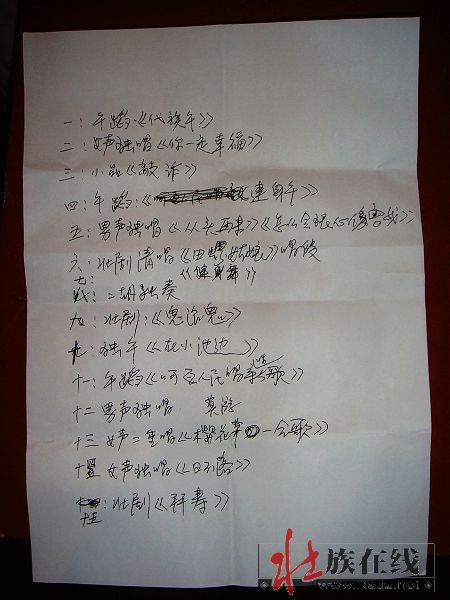 一：午蹈：《代族午》
二：女声独唱《你一定幸福》
三：小品《敲诈》
四：午蹈：《 连身午》
五：男声独唱《从头再来》《怎么会狠心伤害我》
六：壮剧清唱《田螺姑娘》唱段
七：《健身舞》
二胡独奏
九：壮剧：《鬼 鬼》
十：独午《在小池边》
十一：午蹈《 人民唱 歌》
十二 男声独唱
十三 女声二重唱《樱花草 一 会歌》
十四 女声独唱《日不落》
十五：壮剧《拜寿》
壮族在线